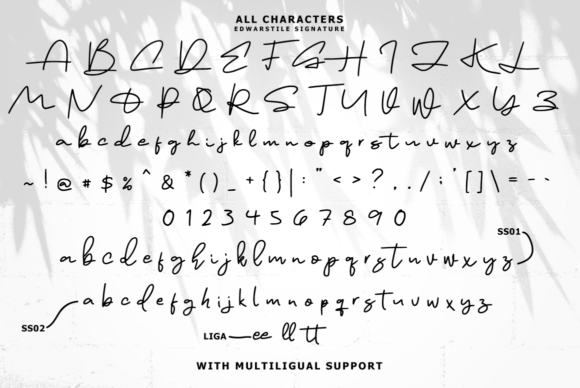 ALL CHARACTERS
EDWARSTILE SIGNATURE
A B C D E F G H I J K L
M N O P Q R S T U V W X Y Z
a b c d e f g h i j k l m n o p q r s t u v w x y z
~ ! @ # $ % ^ & * ( ) _ + { } | : " < > ? , . / ; ' [ ] \ = - -
0 1 2 3 4 5 6 7 8 9 0
SS01
a b c d e f g h i j k l m n o p q r s t u v w x y z
a b c d e f g h i j k l m n o p q r s t u v w x y z
SS02
LIGA ee ll tt
WITH MULTILIGUAL SUPPORT